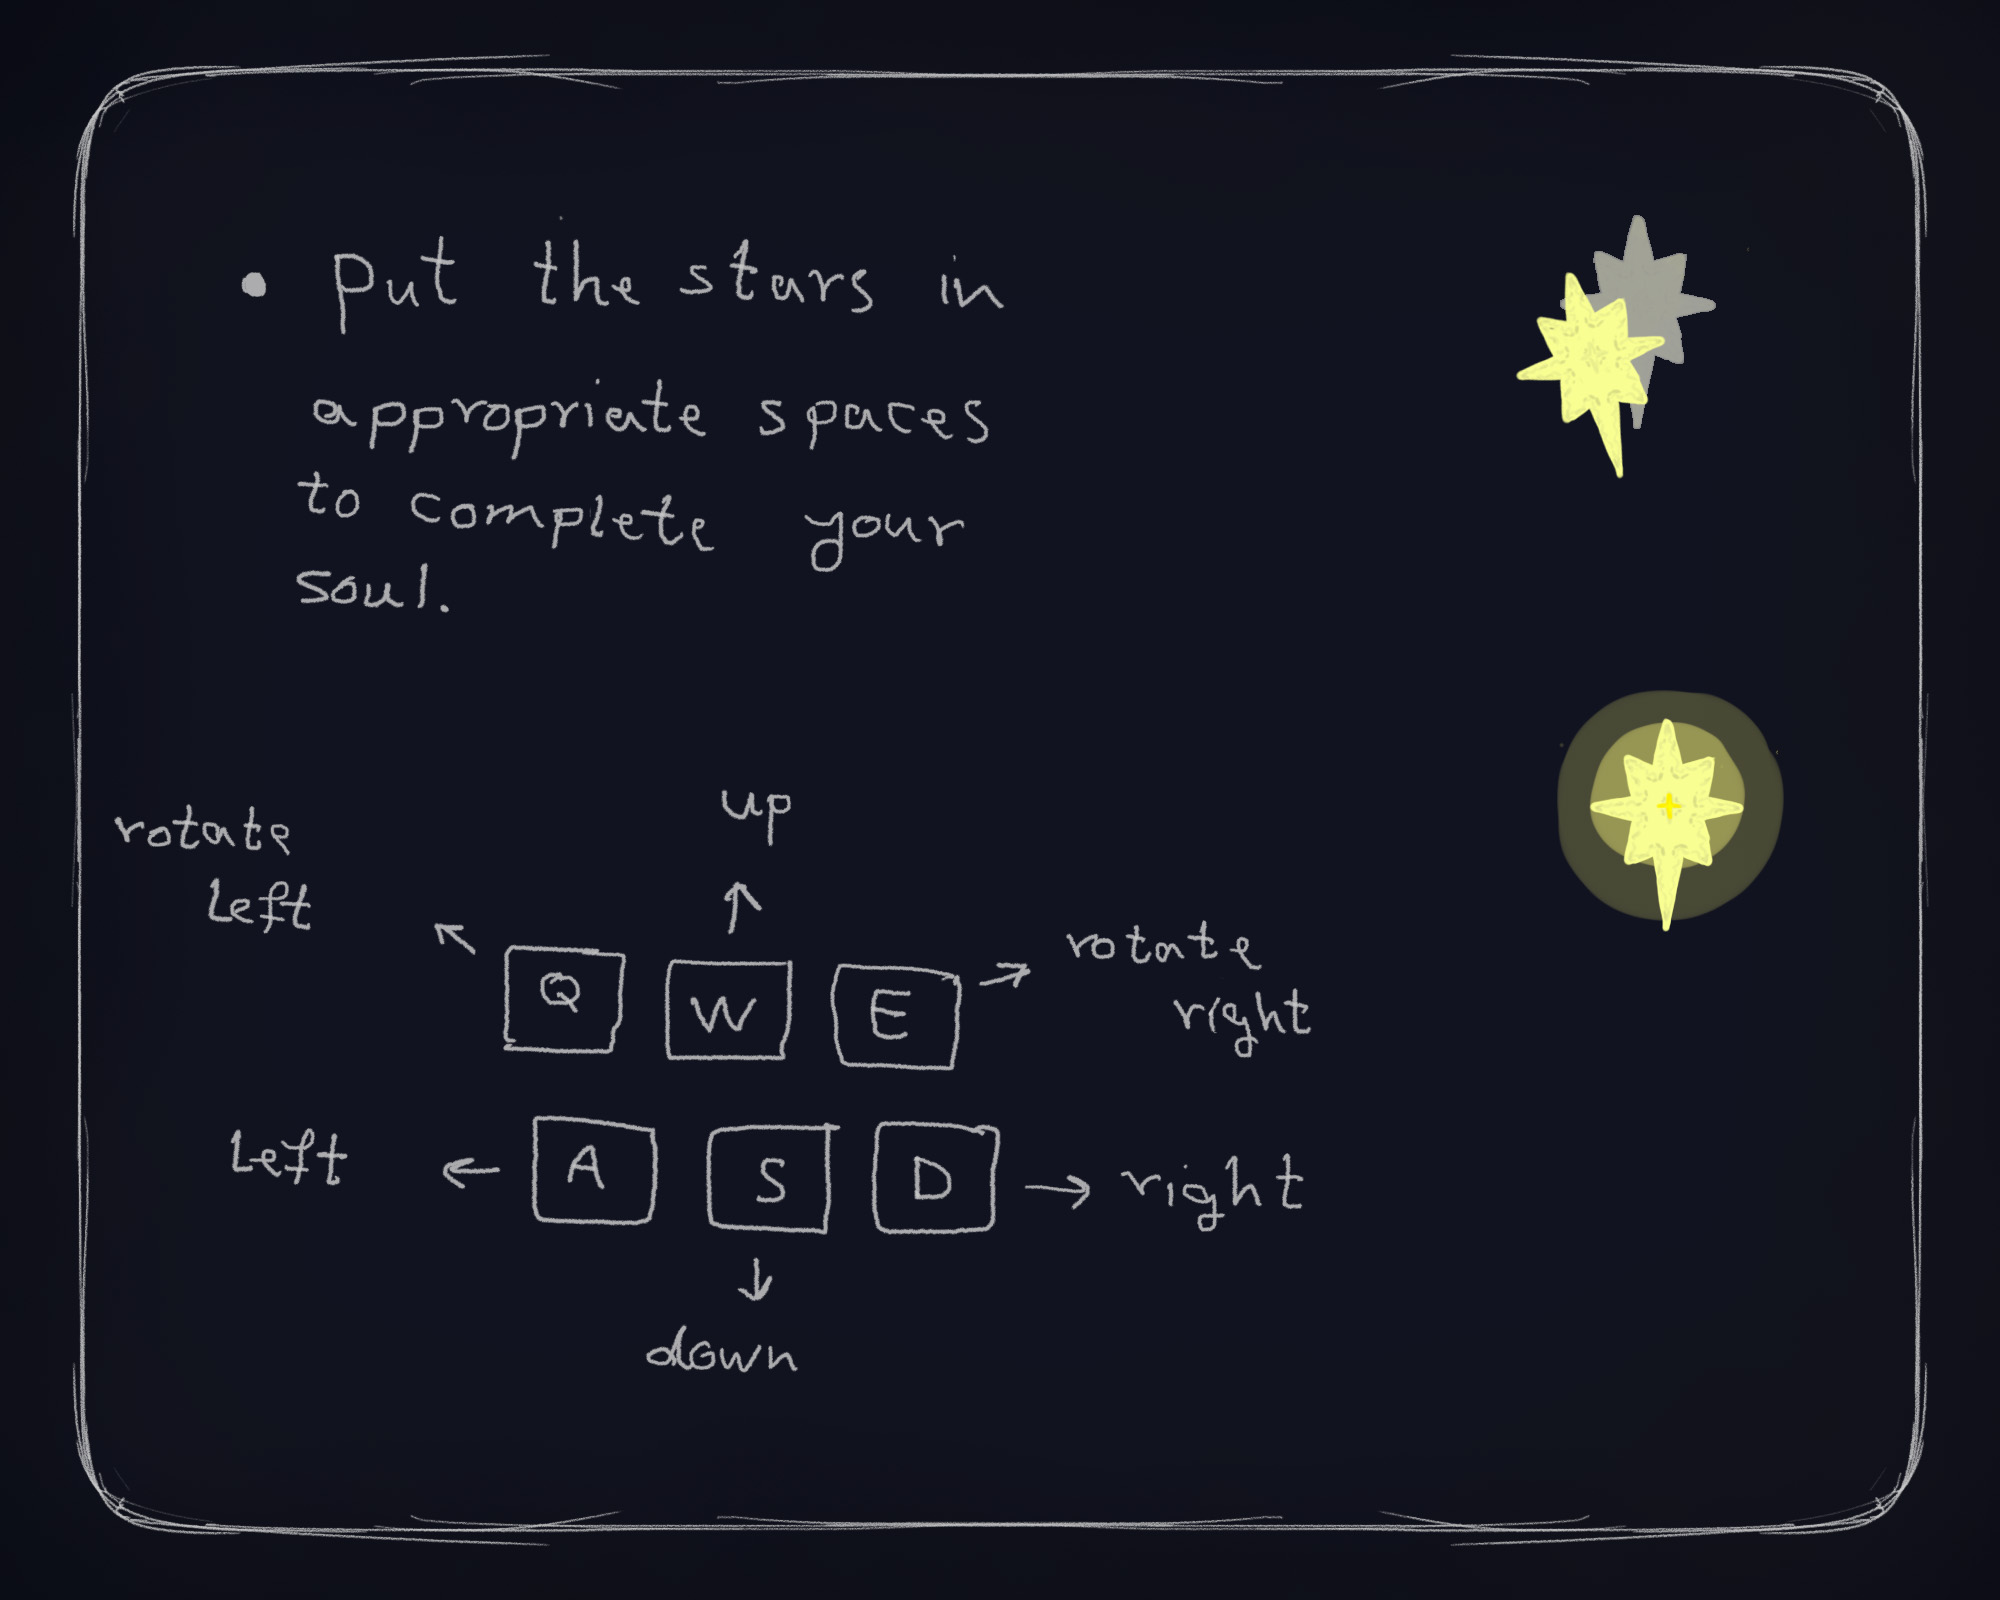 • Put the stars in
appropriate spaces
to complete your
soul.
up
rotate
left
rotate
right
Q W E
left
A S D
right
down